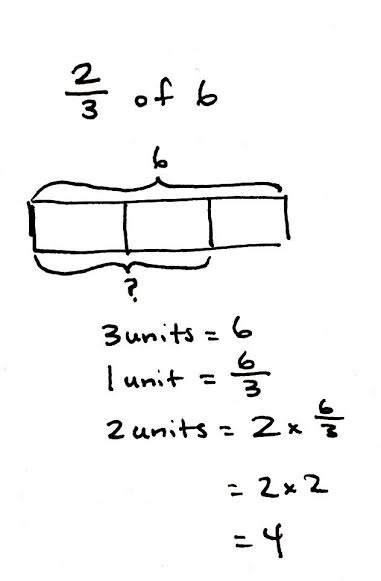 2/3 of 6
6
?
3 units = 6
1 unit = 6/3
2 units = 2 × 6/3
= 2 × 2
= 4